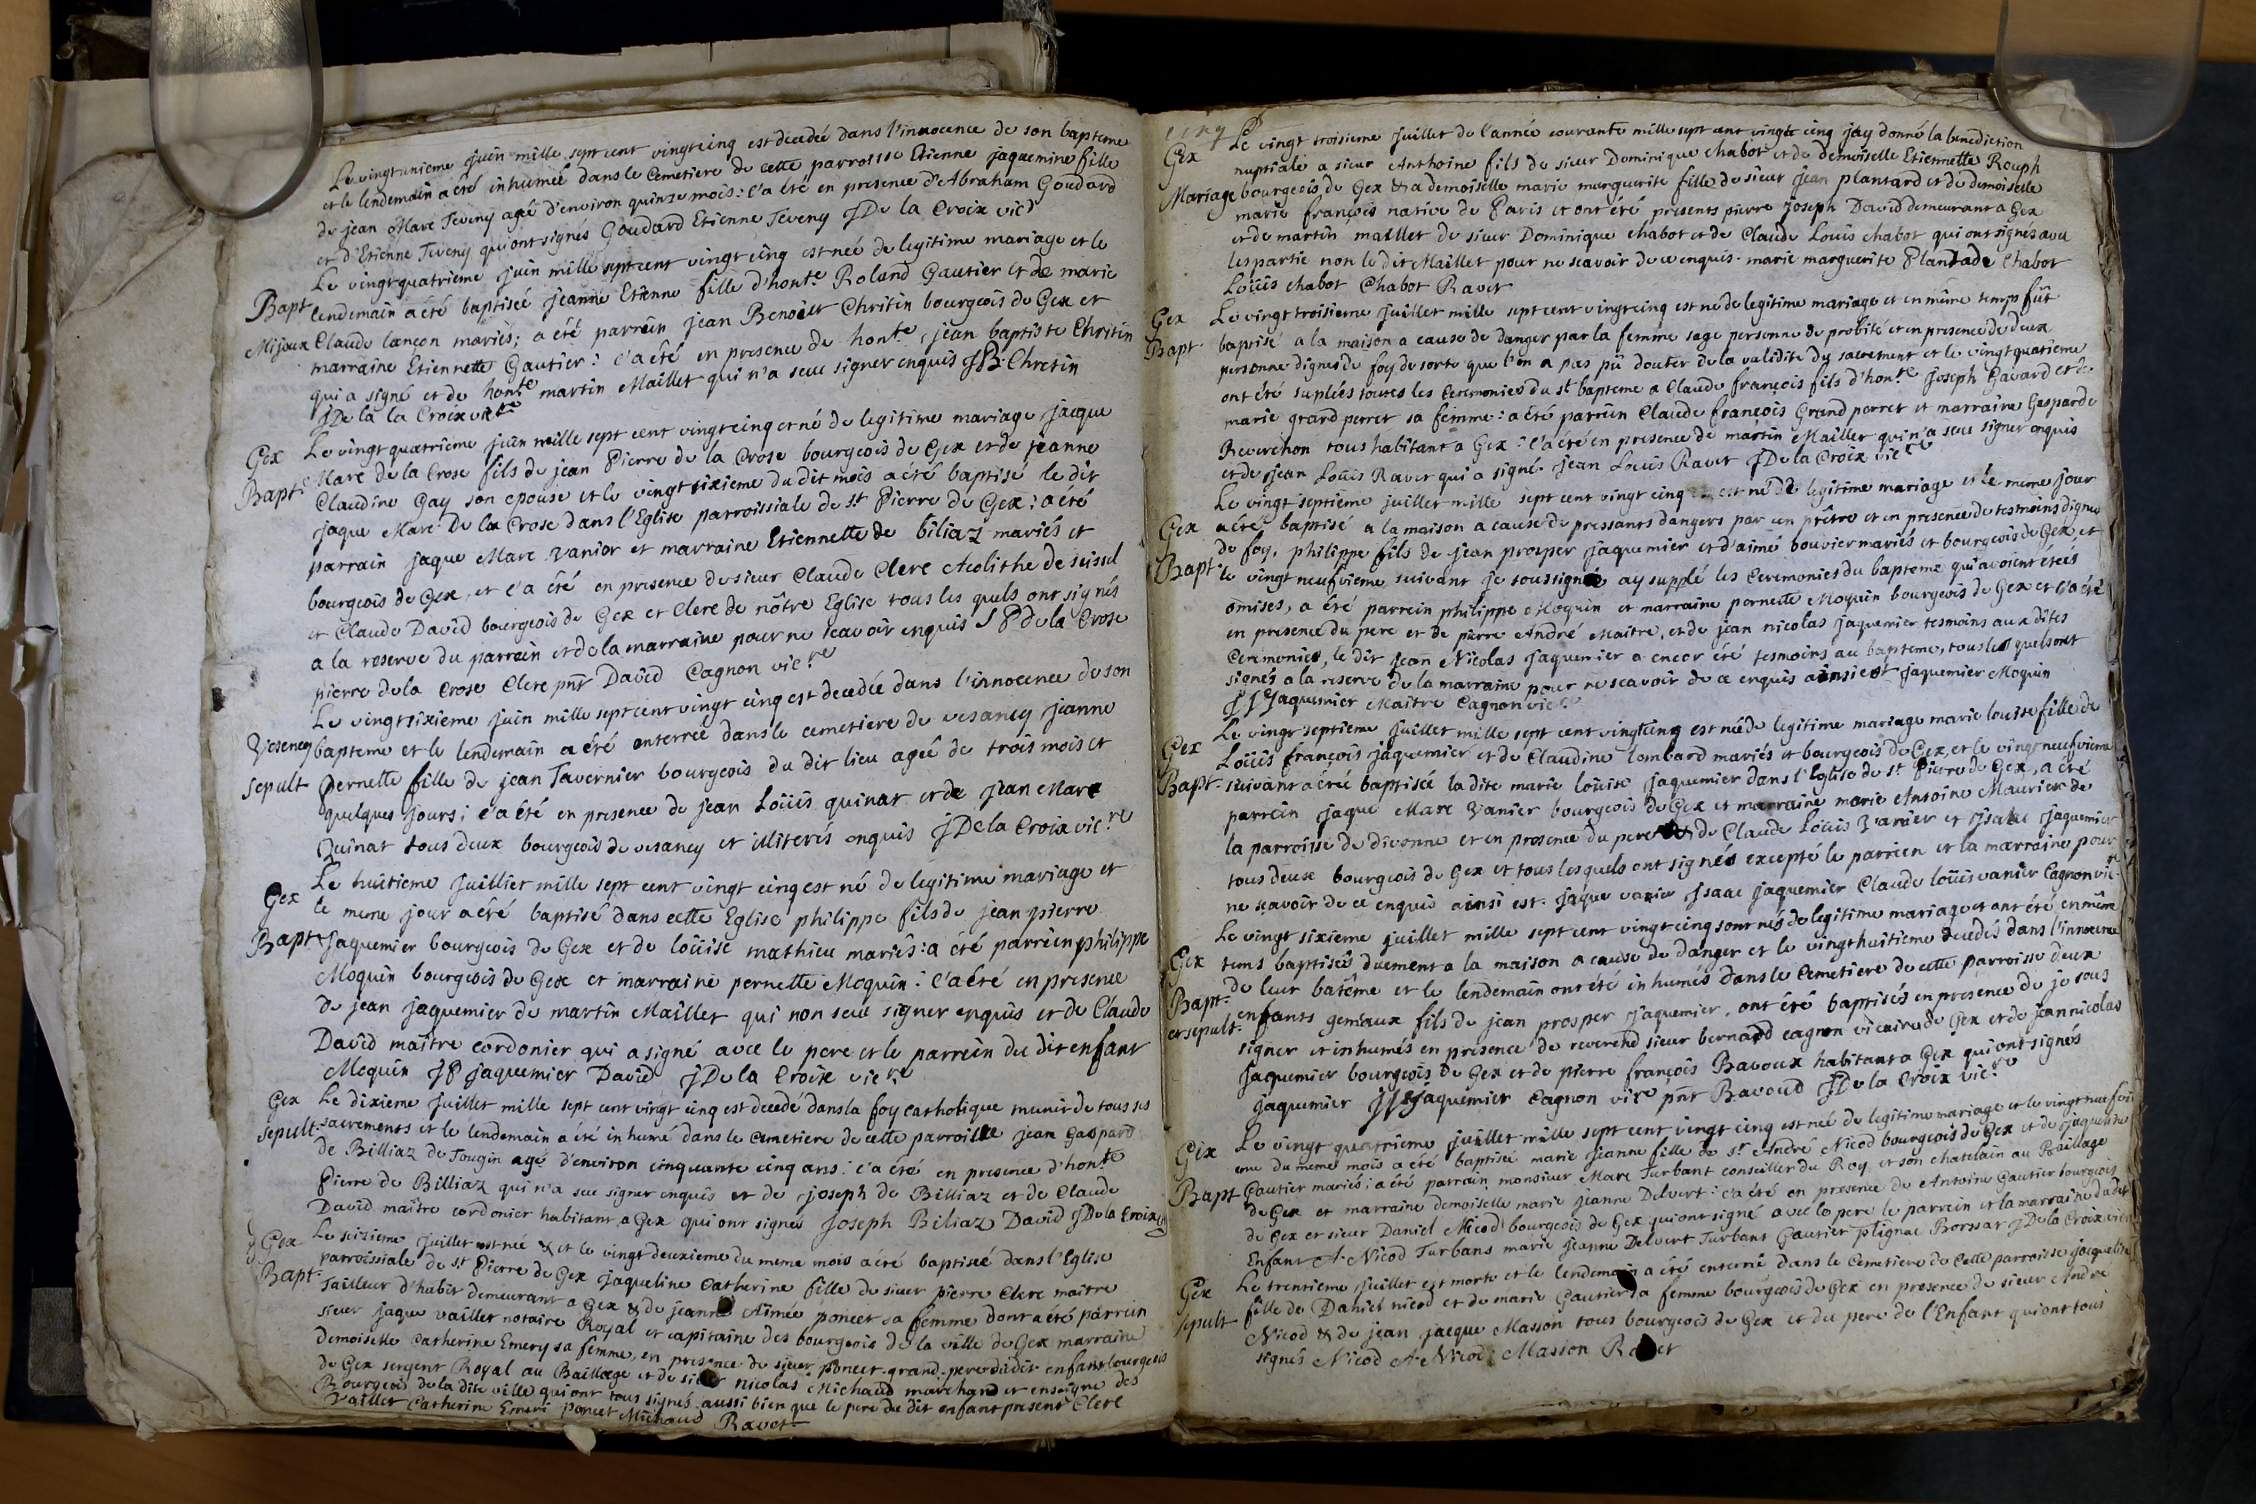 Le vingt unieme juin mille sept cent vingt cinq est decedée dans l'innocence de son bapteme
et le lendemain a été inhumée dans le Cemetiere de cette parroisse Etienne jaquemine fille
de jean Marc Teveny agé d'environ quinze mois: c'a été en presence d'Abraham Goudard
et d'Etienne Teveny qui ont signés Goudard Etienne Teveny JDe la Croix vic
Le vingt quatrieme juin mille sept cent vingt cinq est née de legitime mariage et le
Bapt lendemain a été baptisée jeanne Etienne fille d'hon.te Roland Gautier et de marie
Mijoux Claude lançon mariés; a été parrein jean Benoit Chritin bourgeois de Gex et
marraine Etiennette Gautier: c'a été en presence de hon.te jean baptiste Chritin
qui a signé et de hon.te martin Maillet qui n'a sceu signer enquis JB: Chretin
JDe la la Croix vic.re
Gex Le vingt quatrieme juin mille sept cent vingt cinq et né de legitime mariage jacque
Bapt Marc de la Crose fils de jean Pierre de la Crose bourgeois de Gex et de jeanne
Claudine Gay son epouse et le vingt sixieme du dit mois a été baptisé le dit
jaque Marc De la Crose dans l'Eglise parroissiale de st Pierre de Gex: a été
parrain jaque Marc vanior et marraine Etiennette de biliaz mariés et
bourgeois de Gex, et c'a été en presence de sieur Claude Clerc Acolithe de suissel
et Claude David bourgeois de Gex et Clerc de nôtre Eglise tous les quels ont signés
a la reserve du parrein et de la marraine pour ne scavoir enquis JP de la Crose
pierre de la Crose Clerc pnt David Cagnon vic.re
Le vingt sixieme juin mille sept cent vingt cinq est decedée dans l'innocence de son
Vesency bapteme et le lendemain a été enterrée dans le cemetiere de vesancy jeanne
sepult Pernette fille de jean Tavernier bourgeois du dit lieu agée de trois mois et
quelques jours; c'a été en presence de jean Loüis quinat et de jean Marc
Quinat tous deux bourgeois de vesancy et illiterés enquis JDe la Croix vic.re
Gex Le huitieme juillet mille sept cent vingt cinq est né de legitime mariage et
le meme jour a été baptisé dans cette Eglise philippe fils de jean pierre
Bapt Jaquemier bourgeois de Gex et de loüise mathieu mariés: a été parrein philippe
Moquin bourgeois de Gex et marraine pernette Moquin: c'a été en presence
de jean jaquemier de martin Maillet qui non sceu signer enquis et de Claude
David maître cordonier qui a signé avec le pere et le parrein du dit enfant
Moquin JP jaquemier David JDe la Croix vic.re
Gex Le dixieme juillet mille sept cent vingt cinq est decedé dans la foy catholique muni de tous ses
sepult sacrements et le lendemain a été inhumé dans le cemetiere de cette parroisse jean Gaspard
de Billiaz de Tougin agé d'environ cinquante cinq ans: c'a été en presence d'hon.te
Pierre de Billiaz qui n'a sceu signer enquis et de joseph de Billiaz et de Claude
David maître cordonier habitant a Gex qui ont signés Joseph Biliaz David JDe la Croix
Gex Le seizieme juillet est née & et le vingt deuxieme du meme mois a été baptisée dans l'Eglise
Bapt parroissiale de st Pierre de Gex jaqueline Catherine fille de sieur pierre Clerc maitre
Tailleur d'habit demeurant a Gex & de jeanne Aimée poncet sa femme dont a été parrein
sieur jaque vaillet notaire Royal et capitaine des bourgeois de la ville de Gex marraine
demoiselle Catherine Emery sa femme, en presence de sieur poncet grand-pere du dit enfant bourgeois
de Gex sergent Royal au Bailliage et de sieur nicolas Michaud marchand et enseigne des
Bourgeois de la dite ville qui ont tous signés aussi bien que le pere du dit enfant present Clerc
Vaillet Catherine Emeri poncet Michaud Ravet
Gex Le vingt troisieme juillet de l'année courante mille sept cent vingt cinq jay donné la benediction
nuptiale a sieur Anthoine fils de sieur Dominique chabot et de demoiselle Etiennette Rouph
Mariage bourgeois de Gex & a demoiselle marie marguerite fille de sieur jean plantard et de demoiselle
marie françois native de Paris et ont été presents pierre joseph David demeurant a Gex
et de martin maillet de sieur Dominique chabot et de Claude Louis chabot qui ont signés avec
les partie non le dit Maillet pour ne scavoir de ce enquis. marie marguerite Plantade Chabot
Loüis chabot Chabot Ravet
Gex Le vingt troisieme juillet mille sept cent vingt cinq est né de legitime mariage et en même temps fût
Bapt baptisé a la maison a cause de danger par la femme sage personne de probité et en presence de deux
personne dignes de foy de sorte que l'on a pas pû douter de la validité du sacrement et le vingt quatrieme
ont été supléés toutes les Ceremonies du st bapteme a Claude françois fils d'hon.te Joseph Gavard et de
marie grand perret sa femme: a été parrein Claude françois Grand perret et marraine Gasparde
Reverchon tous habitant a Gex: c'a été en presence de martin Maillet qui n'a sceu signer enquis
et de jean Loüis Ravet qui a signé. jean Louis Ravet JDe la Croix vic.re
Le vingt septieme juillet mille sept cent vingt cinq est né de legitime mariage et le meme jour
Gex a été baptisé a la maison a cause de pressants dangers par un prêtre et en presence de tesmoins dignes
de foy, philippe fils de jean prosper jaquemier et d'aimé bouvier mariés et bourgeois de Gex, et
Bapt le vingt neufvieme suivant je soussigné ay supplé les Ceremonies du bapteme qui avoient étés
omises, a été parrein philippe Moquin et marraine pernette Moquin bourgeois de Gex et c'a été
en presence du pere et de pierre André Maitre, et de jean nicolas jaquemier tesmoins aux dites
Ceremonies, le dit jean Nicolas jaquemier a encor été tesmoins au bapteme, tous les quels ont
signés a la reserve de la marraine pour ne scavoir de ce enquis ainsi est jaquemier Moquin
JJ Jaquemier Maitre Cagnon vic
Gex Le vingt septieme juillet mille sept cent vingt cinq est née de legitime mariage marie louise fille de
Loüis françois jaquemier et de Claudine lombard mariés et bourgeois de Gex, et le vingt neufvieme
Bapt suivant a été baptisée la dite marie loüise jaquemier dans l'Eglise de st Pierre de Gex, a été
parrein jaque Marc Vanier bourgeois de Gex et marraine marie Antoine Maurier de
la parroisse de divonne et en presence du pere & de Claude Loüis Vanier et jsaac jaquemier
tous deux bourgeois de Gex et tous lesquels ont signés excepté le parrien et la marraine pour
ne scavoir de ce enquis ainsi est. jaque vanier jsaac jaquemier Claude loüis vanier Cagnon vic.re
Le vingt sixieme juillet mille sept cent vingt cinq sont nés de legitime mariage et ont été en même
Gex tems baptisés duement a la maison a cause de danger et le vingt huitieme decedés dans l'innocence
de leur batême et le lendemain ont été inhumés dans le Cemetiere de cette parroisse deux
Bapt enfants gemeaux fils de jean prosper jaquemier, ont été baptisés en presence de je sous
et sepult signer et inhumés en presence de reverend sieur bernard cagnon vicaire de Gex et de jean nicolas
jaquemier bourgeois de Gex et de pierre françois Bavoux habitant a Gex qui ont signés
jaquemier JJ jaquemier Cagnon vic.e pnt Bavoud JDe la Croix vic.re
Gex Le vingt quatrieme juillet mille sept cent vingt cinq est née de legitime mariage et le vingt neufvi
eme du meme mois a été baptisée marie jeanne fille de sr André Nicod bourgeois de Gex et de jaqueline
Bapt Gautier mariés; a été parrein monsieur Marc Turbant conseiller du Roy et son chatelain au Bailliage
de Gex et marraine demoiselle marie jeanne Delvert: c'a été en presence de Antoine Gautier bourgeois
de Gex et sieur Daniel Nicod bourgeois de Gex qui ont signé avec le pere le parrein et la marraine du dit
Enfant A. Nicod Turbans marie jeanne Delvert Turbant Gautier JDe la Croix vic
Gex Le trentieme juillet est morte et le lendemain a été enterré dans le Cemetiere de cette parroisse jaqueline
sepult fille de Daniel nicod et de marie Gautier sa femme bourgeois de Gex en presence de sieur André
Nicod & de jean jacque Masson tous bourgeois de Gex et du pere de l'Enfant qui ont tous
signés Nicod A. Nicod Masson